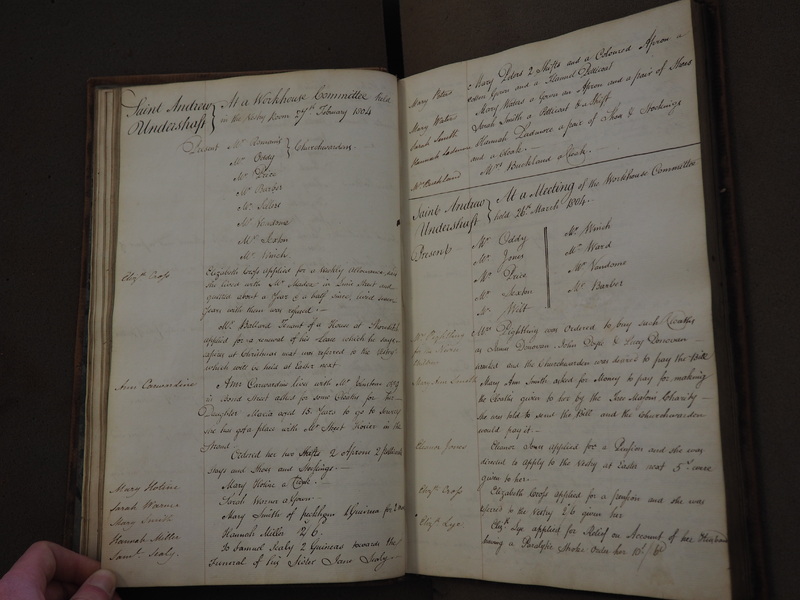 Saint Andrew Undershaft } At a Workhouse Committee held
in the Vestry Room 27th February 1804
Present Mr
Mr Oddy } Churchwardens
Mr Price
Mr Barber
Mr Sellers
Mr Vandome
Mr Sexton
Mr Winch
Elizth Cross Elizabeth Cross applied for a Weekly Allowance
she lived with Mr in Street and
quitted about a Year & a half since, lived seven
Years with them was refused. —
Mr Ballard Tenant of a House at
applied for a renewal of his Lease which
at Christmas next was referred to the Vestry
which will be held at Easter next
Ann Carwardine Ann Carwardine lives with Mr No 9
in Bond Street asked for some Cloaths for her
Daughter Maria aged 15 Years to go to Service
she has got a place with Mr in the
Strand.
Ordered her two Shifts 2 Aprons 2
Stays and Shoes and Stockings. —
Mary Hotine Mary Hotine a Cloak. —
Sarah Warner Sarah Warner a Gown —
Mary Smith Mary Smith of Peckham 1 Guinea for
Hannah Miller Hannah Miller 2/6.
Saml Sealy. To Samuel Sealy 2 Guineas towards the
Funeral of his Sister Jane Sealy. —
Mary Peters Mary Peters 2 Shifts and a Coloured Apron a
Gown and a Flannel Petticoat
Mary Waters Mary Waters a Gown an Apron and a pair of Shoes
Sarah Smith Sarah Smith a Petticoat & a Shift
Hannah Hannah a pair of Shoes & Stockings
and a Cloak. —
Mrs Buckland Mrs Buckland a Cloak. —
Saint Andrew Undershaft } At a Meeting of the Workhouse Committee
held 26th March 1804. —
Present
Mr Oddy Mr Winch
Mr Jones Mr Ward
Mr Price Mr Vandome
Mr Sexton Mr Barber
Mr Witt
Mrs Pightling for the Mrs Pightling was ordered to buy such Cloaths
as Donovan John and Lucy Donovan
wanted and the Churchwarden was desired to pay the Bill
Mary Ann Smith Mary Ann Smith asked for Money to pay for making
the Cloaths given to her by the Free Masons Charity —
she was told to send the Bill and the Churchwarden
would pay it. —
Eleanor Jones Eleanor Jones applied for a Pension and she was
directed to apply to the Vestry at Easter next 5s/ were
given to her. —
Elizth Cross Elizabeth Cross applied for a pension and she was
referred to the Vestry 2/6 given her
Elizth Lye. Elizth Lye applied for Relief on Account of her Husband
having a Paralytic Stroke Order her